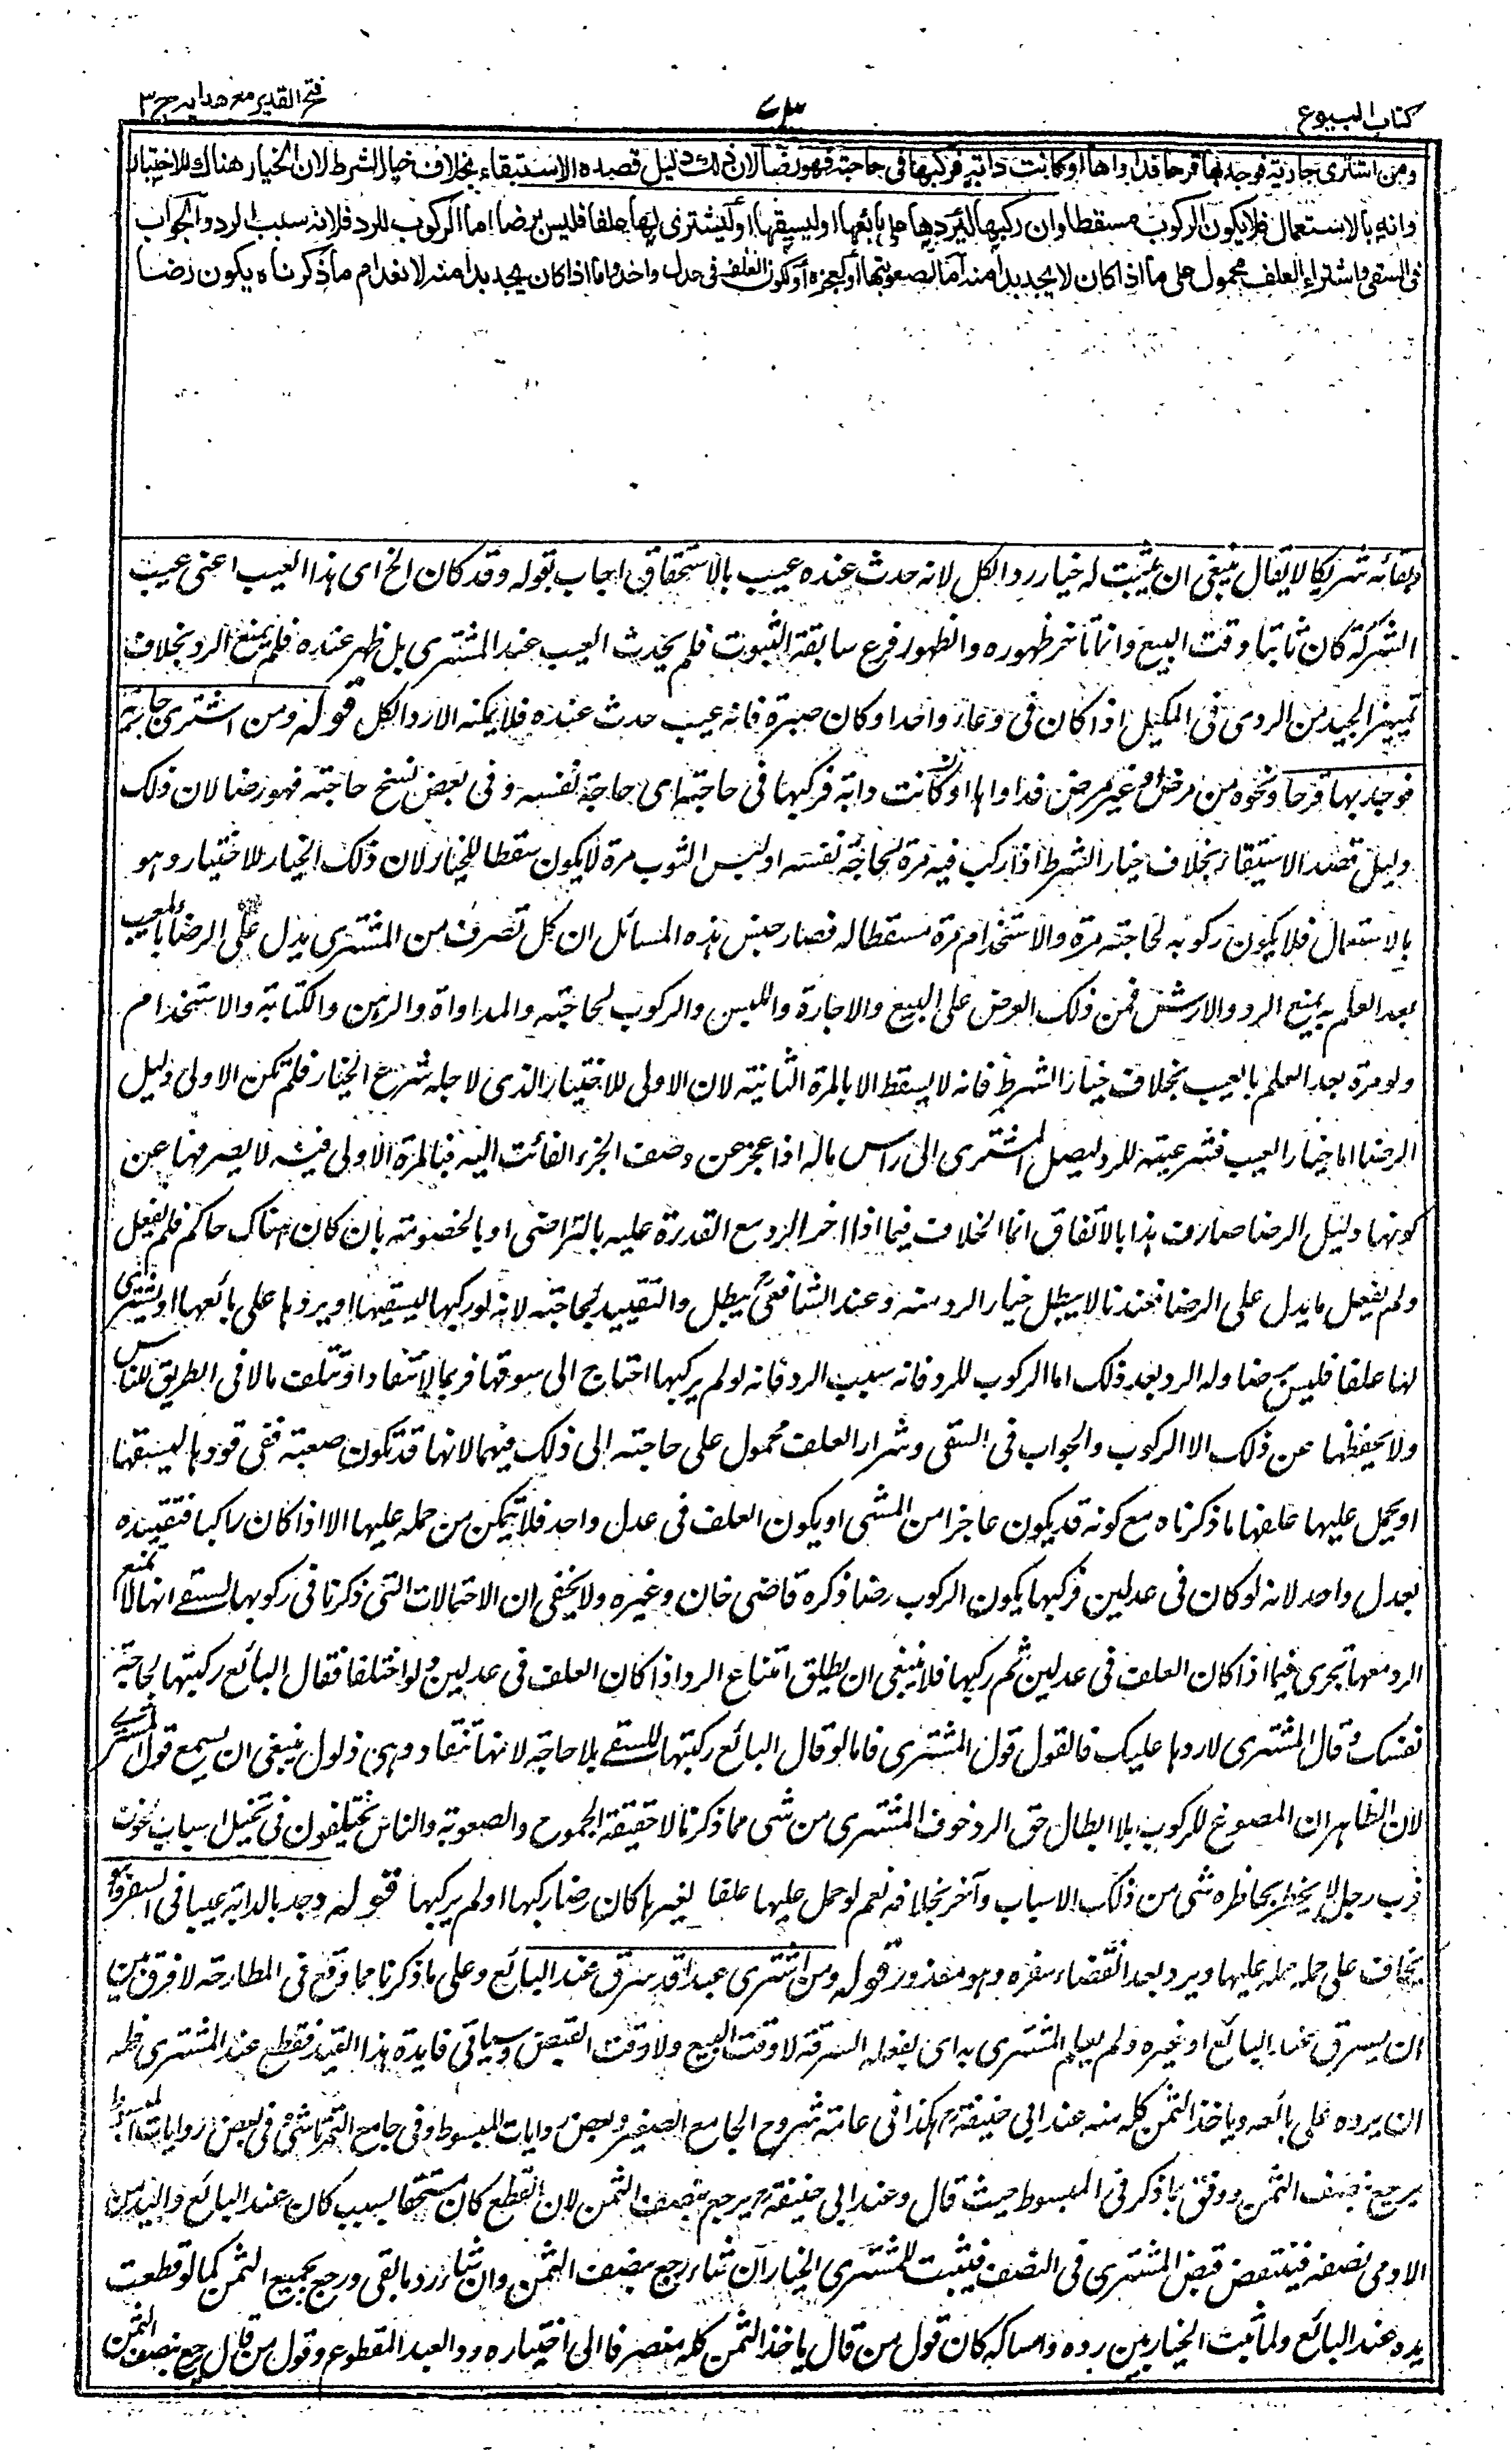 كتاب البيوع
٧٣
فتح القدير مع هدايه ج ٣
ومن اشترى جارية فوجد بها قرحا فداواها او كانت دابة فركبها فى حاجته فهو رضا لان ذلك دليل قصده الاستبقاء بخلاف خيار الشرط لان الخيار هناك للاختبار
وانه بالاستعمال فلا يكون الركوب مسقطا وان ركبها ليردها على بائعها او ليسقيها او ليشترى لها علفا فليس برضا اما الركوب للرد فلانه سبب الرد والجواب
فى السقى واشتراء العلف محمول على ما اذا كان لا يجد بدا منه اما لصعوبتها او لعجزه او لكون العلف فى عدل واحد واما اذا كان يجد بدا منه لانعدام ما ذكرناه يكون رضا
وبقائه شريكا لا يقال ينبغى ان يثبت له خيار رد الكل لانه حدث عنده عيب بالاستحقاق اجاب بقوله وقد كان الخ اى هذا العيب اعنى عيب
الشركة كان ثابتا وقت البيع وانما تاخر ظهوره والظهور فرع سابقة الثبوت فلم يحدث العيب عند المشترى بل ظهر عنده فلم يمنع الرد بخلاف
تمييز الجيد من الردى فى المكيل اذا كان فى وعاء واحد او كان صبرة فانه عيب حدث عنده فلا يمكنه الا رد الكل قوله ومن اشترى جارية
فوجد بها قرحا ونحوه من مرض او غير مرض فداواها او كانت دابة فركبها فى حاجتها اى حاجة نفسه وفى بعض نسخ حاجته فهو رضا لان ذلك
دليل قصد الاستبقاء بخلاف خيار الشرط اذا ركب فيه مرة لحاجة نفسه او لبس الثوب مرة لا يكون مسقطا للخيار لان ذلك الخيار للاختبار وهو
بالاستعمال فلا يكون ركوبه لحاجته مرة والاستخدام مرة مسقطا له فصار جنس هذه المسائل ان كل تصرف من المشترى يدل على الرضا بالعيب
بعد العلم به يمنع الرد والارش فمن ذلك العرض على البيع والاجارة واللبس والركوب لحاجته والمداواة والرهن والكتابة والاستخدام
ولو مرة بعد العلم بالعيب بخلاف خيار الشرط فانه لا يسقط الا بالمرة الثانية لان الاولى للاختبار الذى لاجله شرع الخيار فلم تكن الاولى دليل
الرضا اما خيار العيب فشرعيته للرد ليصل المشترى الى راس ماله اذا عجز عن وصف الجزء الفائت اليه فبالمرة الاولى فيه لا يصرفها عن
كونها دليل الرضا صارف هذا بالاتفاق انما الخلاف فيما اذا اخر الرد مع القدرة عليه بالتراضى او بالخصومة بان كان هناك حاكم فلم يفعل
ولم يفعل ما يدل على الرضا فعندنا لا يبطل خيار الرد منه وعند الشافعى يبطل والتقييد لحاجته لانه لو ركبها ليسقيها او يردها على بائعها او يشترى
لها علفا فليس برضا وله الرد بعد ذلك اما الركوب للرد فانه سبب الرد فانه لو لم يركبها احتاج الى سوقها فربما لا تنقاد او تتلف مالا فى الطريق للناس
ولا يحفظها عن ذلك الا الركوب والجواب فى السقى وشراء العلف محمول على حاجته الى ذلك فيهما لانها قد تكون صعبة ففى قودها ليسقيها
او يحمل عليها علفها ما ذكرناه مع كونه قد يكون عاجزا من المشى او يكون العلف فى عدل واحد فلا يتمكن من حمله عليها الا اذا كان راكبا فتقييده
بعدل واحد لانه لو كان فى عدلين فركبها يكون الركوب رضا ذكره قاضى خان وغيره ولا يخفى ان الاحتمالات التى ذكرنا فى ركوبها للسقى انها لا تمنع
الرد معها تجرى فيما اذا كان العلف فى عدلين ثم ركبها فلا ينبغى ان يطلق امتناع الرد اذا كان العلف فى عدلين ولو اختلفا فقال البائع ركبتها لحاجة
نفسك وقال المشترى لاردها عليك فالقول قول المشترى فاما لو قال البائع ركبتها للسقى بلا حاجة لانها تنقاد وهى ذلول ينبغى ان يسمع قول المشترى
لان الظاهر ان المصوغ للركوب بلا ابطال حق الرد خوف المشترى من شى مما ذكرنا لا حقيقة الجموح والصعوبة والناس يختلفون فى تخيل اسباب الخوف
فرب رجل لا يخطر بخاطره شى من ذلك الاسباب وآخر بخلافه نعم لو حمل عليها علفا لغيرها كان رضا ركبها او لم يركبها قوله وجد بالدابة عيبا فى السفر وهو
يخاف على حمله حمله عليها ويرد بعد انقضاء سفره وهو معذور قوله ومن اشترى عبدا قد سرق عند البائع وعلى ما ذكرنا مما وقع فى المطارحة لا فرق بين
ان يسرق عند البائع او غيره ولم يعلم المشترى به اى بفعله السرقة لا وقت البيع ولا وقت القبض وسياتى فايدة هذا القيد فقطع عند المشترى فله
ان يرده على بائعه وياخذ الثمن كله منه عند ابى حنيفة هكذا فى عامة شروح الجامع الصغير وبعض روايات المبسوط وفى جامع التمرتاشى فى بعض روايات المبسوط
يرجع بنصف الثمن ووفق بما ذكر فى المبسوط حيث قال وعند ابى حنيفة يرجع بنصف الثمن لان القطع كان مستحقا بسبب كان عند البائع واليد من
الادمى نصفه فينتقض قبض المشترى فى النصف فيثبت للمشترى الخيار ان شاء رجع بنصف الثمن وان شاء رد ما بقى ورجع بجميع الثمن كما لو قطعت
يده عند البائع ولما ثبت الخيار بين رده وامساكه كان قول من قال ياخذ الثمن كله منصرفا الى اختياره رد العبد المقطوع وقول من قال يرجع بنصف الثمن